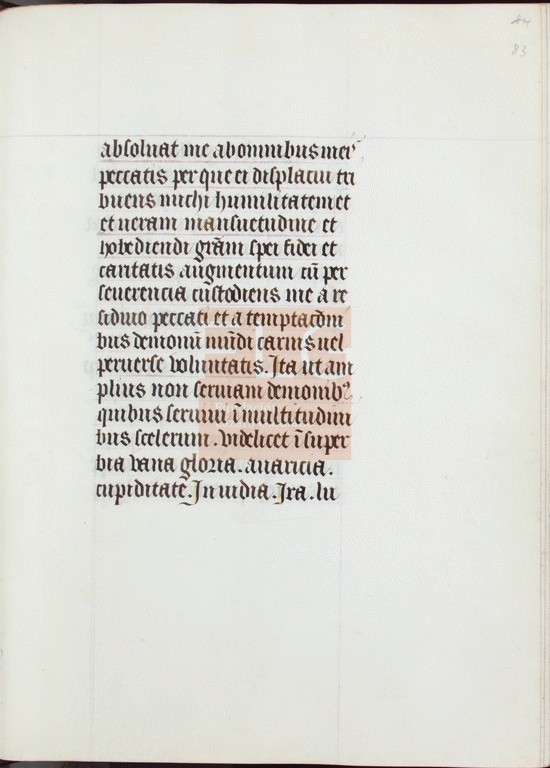 84
83
absoluat me ab omnibus meis
peccatis per que ei displacui tri
buens michi humilitatem et
et ueram mansuetudinē et
hobediendi grãm spei fidei et
caritatis augmentum cū per
seuerencia custodiens me a re
siduo peccati et a temptacõni
bus demonū mũdi carnis uel
peruerse voluntatis. Ita ut am
plius non seruiam demonibꝰ
quibus seruiui ī multitudini
bus scelerum. videlicet ī super
bia vana gloria. auaricia.
cupiditate. Inuidia. Ira. lu